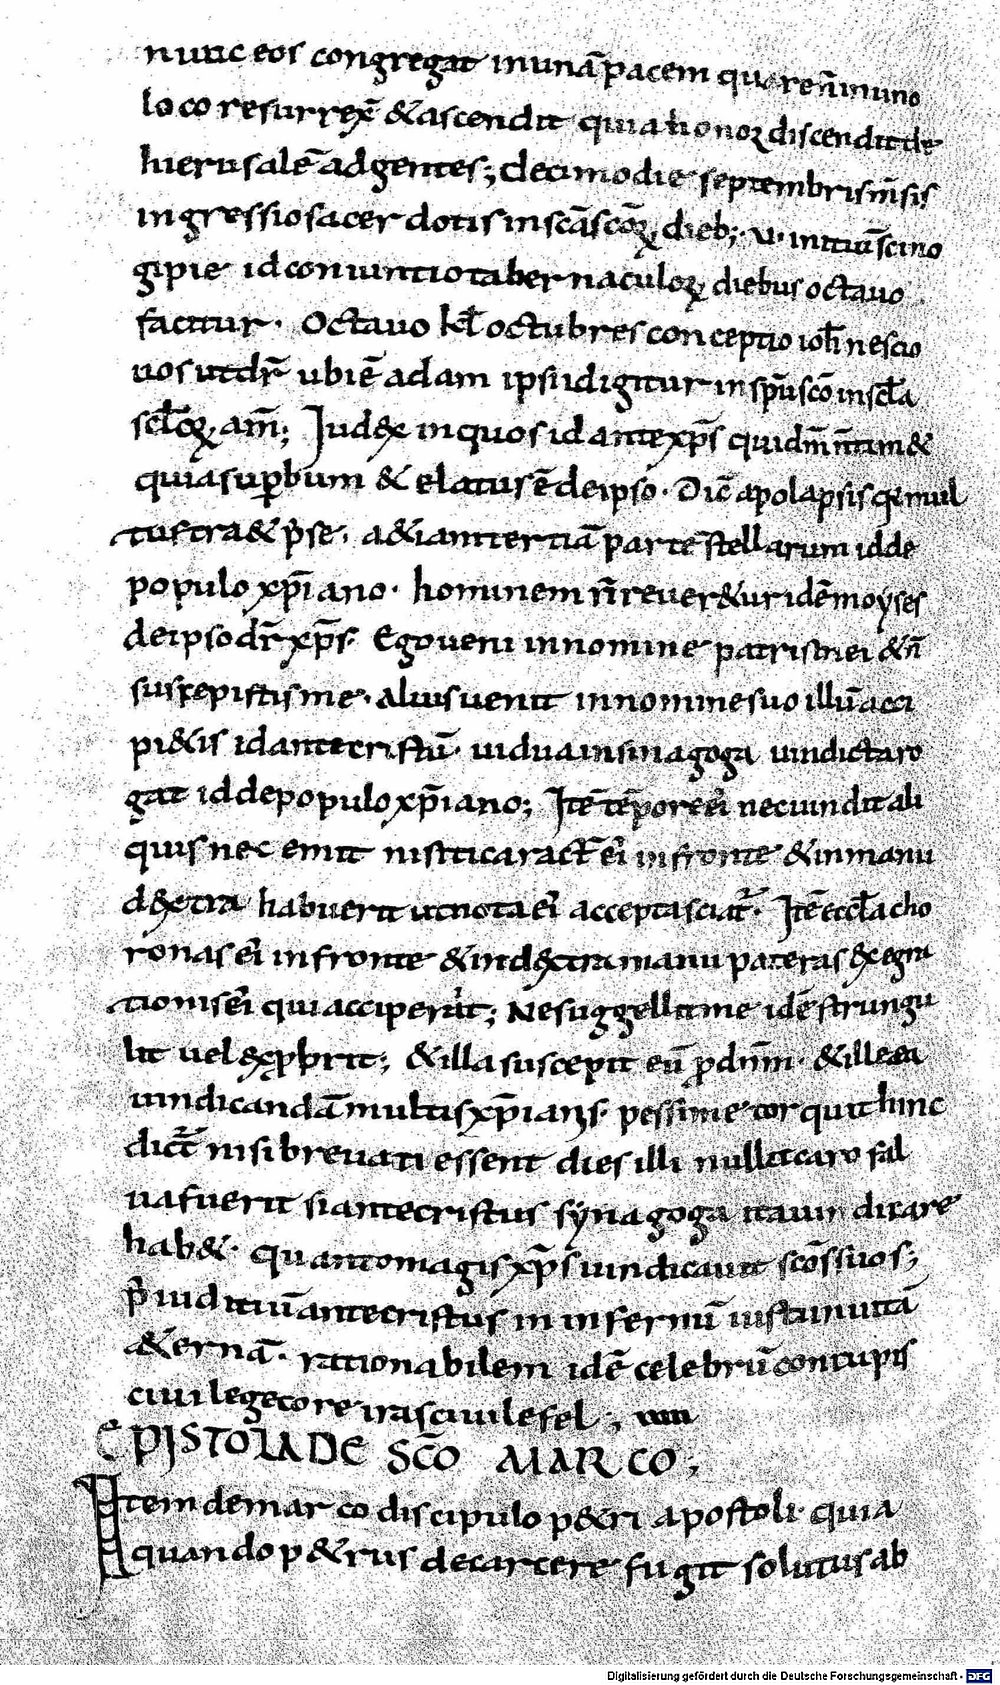 nunc eos congregat in unā pacem quare n̄ in uno
loco resurrex̄ & ascendit quia honor discendit de
hierusalē ad gentes; decimo die septembris m̄sis
ingressio sacerdotis in scā scōꝝ dieb; v· initiū scino
gipie id coniunctio tabernaculoꝝ diebus octavo
facitur· Octavo kl̄ octubres conceptio ioh̄ nescio
uos ut dr̄ ubi ē adam ipsi iđ igitur in sp̄u scō in scl̄a
scl̄oꝝ am̄; Iudex inquos id antexp̄s quid
quia sup̄bum & elatus ē de ipso· Dic̄ apolapsis q
tus tra&p̄se· a&iam tertiā partē stellarum id de
populo xp̄iano· hominem n̄ rever&ur idē moyses
de ipso dr̄ xp̄s· Ego veni in nomine patris mei & n̄
suscepistis me· alius uenit in nomine suo illū acci
pi&is id antecristū· uidua in sinagoga uindicta ro
gat id de populo xp̄iano; Itē tēpore ei nec uindit ali
quis nec emit nisi ticaract̄ ei in fronte & in manu
dextra habuerit ut nota ei accepta sciat̄· Itē eccl̄a cho
ronas ei in fronte & in dextra manu pateras & egra
tionis ei qui acciperit; Ne suggellit me idē strungu
lit uel exp̄brit; & illa suscepit eū p̄ dn̄m· & ille ea
uindicandā multis xp̄ianis· pessime torquit hinc
dict̄ nisi brevati essent dies illi nullit caro sal
ua fuerit si antecristus synagoga ita uin dicare
hab&· quanto magis xp̄s uindicavit scōs suos;
p̄ iuditiū antecristus in infernū iusti in uitā
a&ernā· rationabilem idē celebrū contupis
civile gecore irascivile fel;
EPISTOLA DE SCŌ MARCO;
Item de marco discipulo p&ri apostoli· quia
quando p&rus de carcere fugit solutus ab
Digitalisierung gefördert durch die Deutsche Forschungsgemeinschaft - DFG